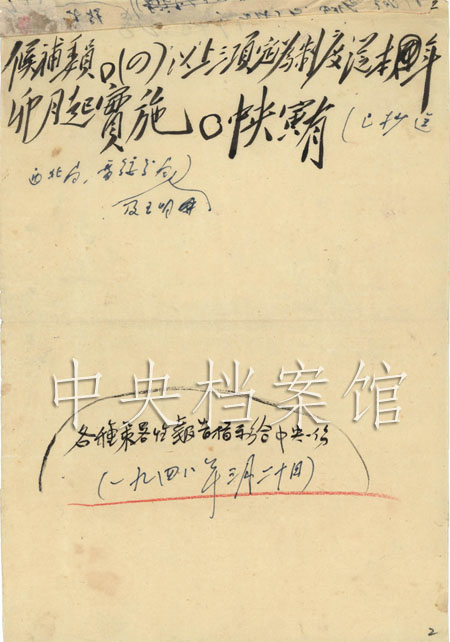 候補類。(四)以上三項定為制度從本年
卯月起實施。中央寅有(已抄送
西北局、晉綏分局
及王明
中央档案馆
各種策略性報告指示給中央一份
(一九四八年三月二十日)
2